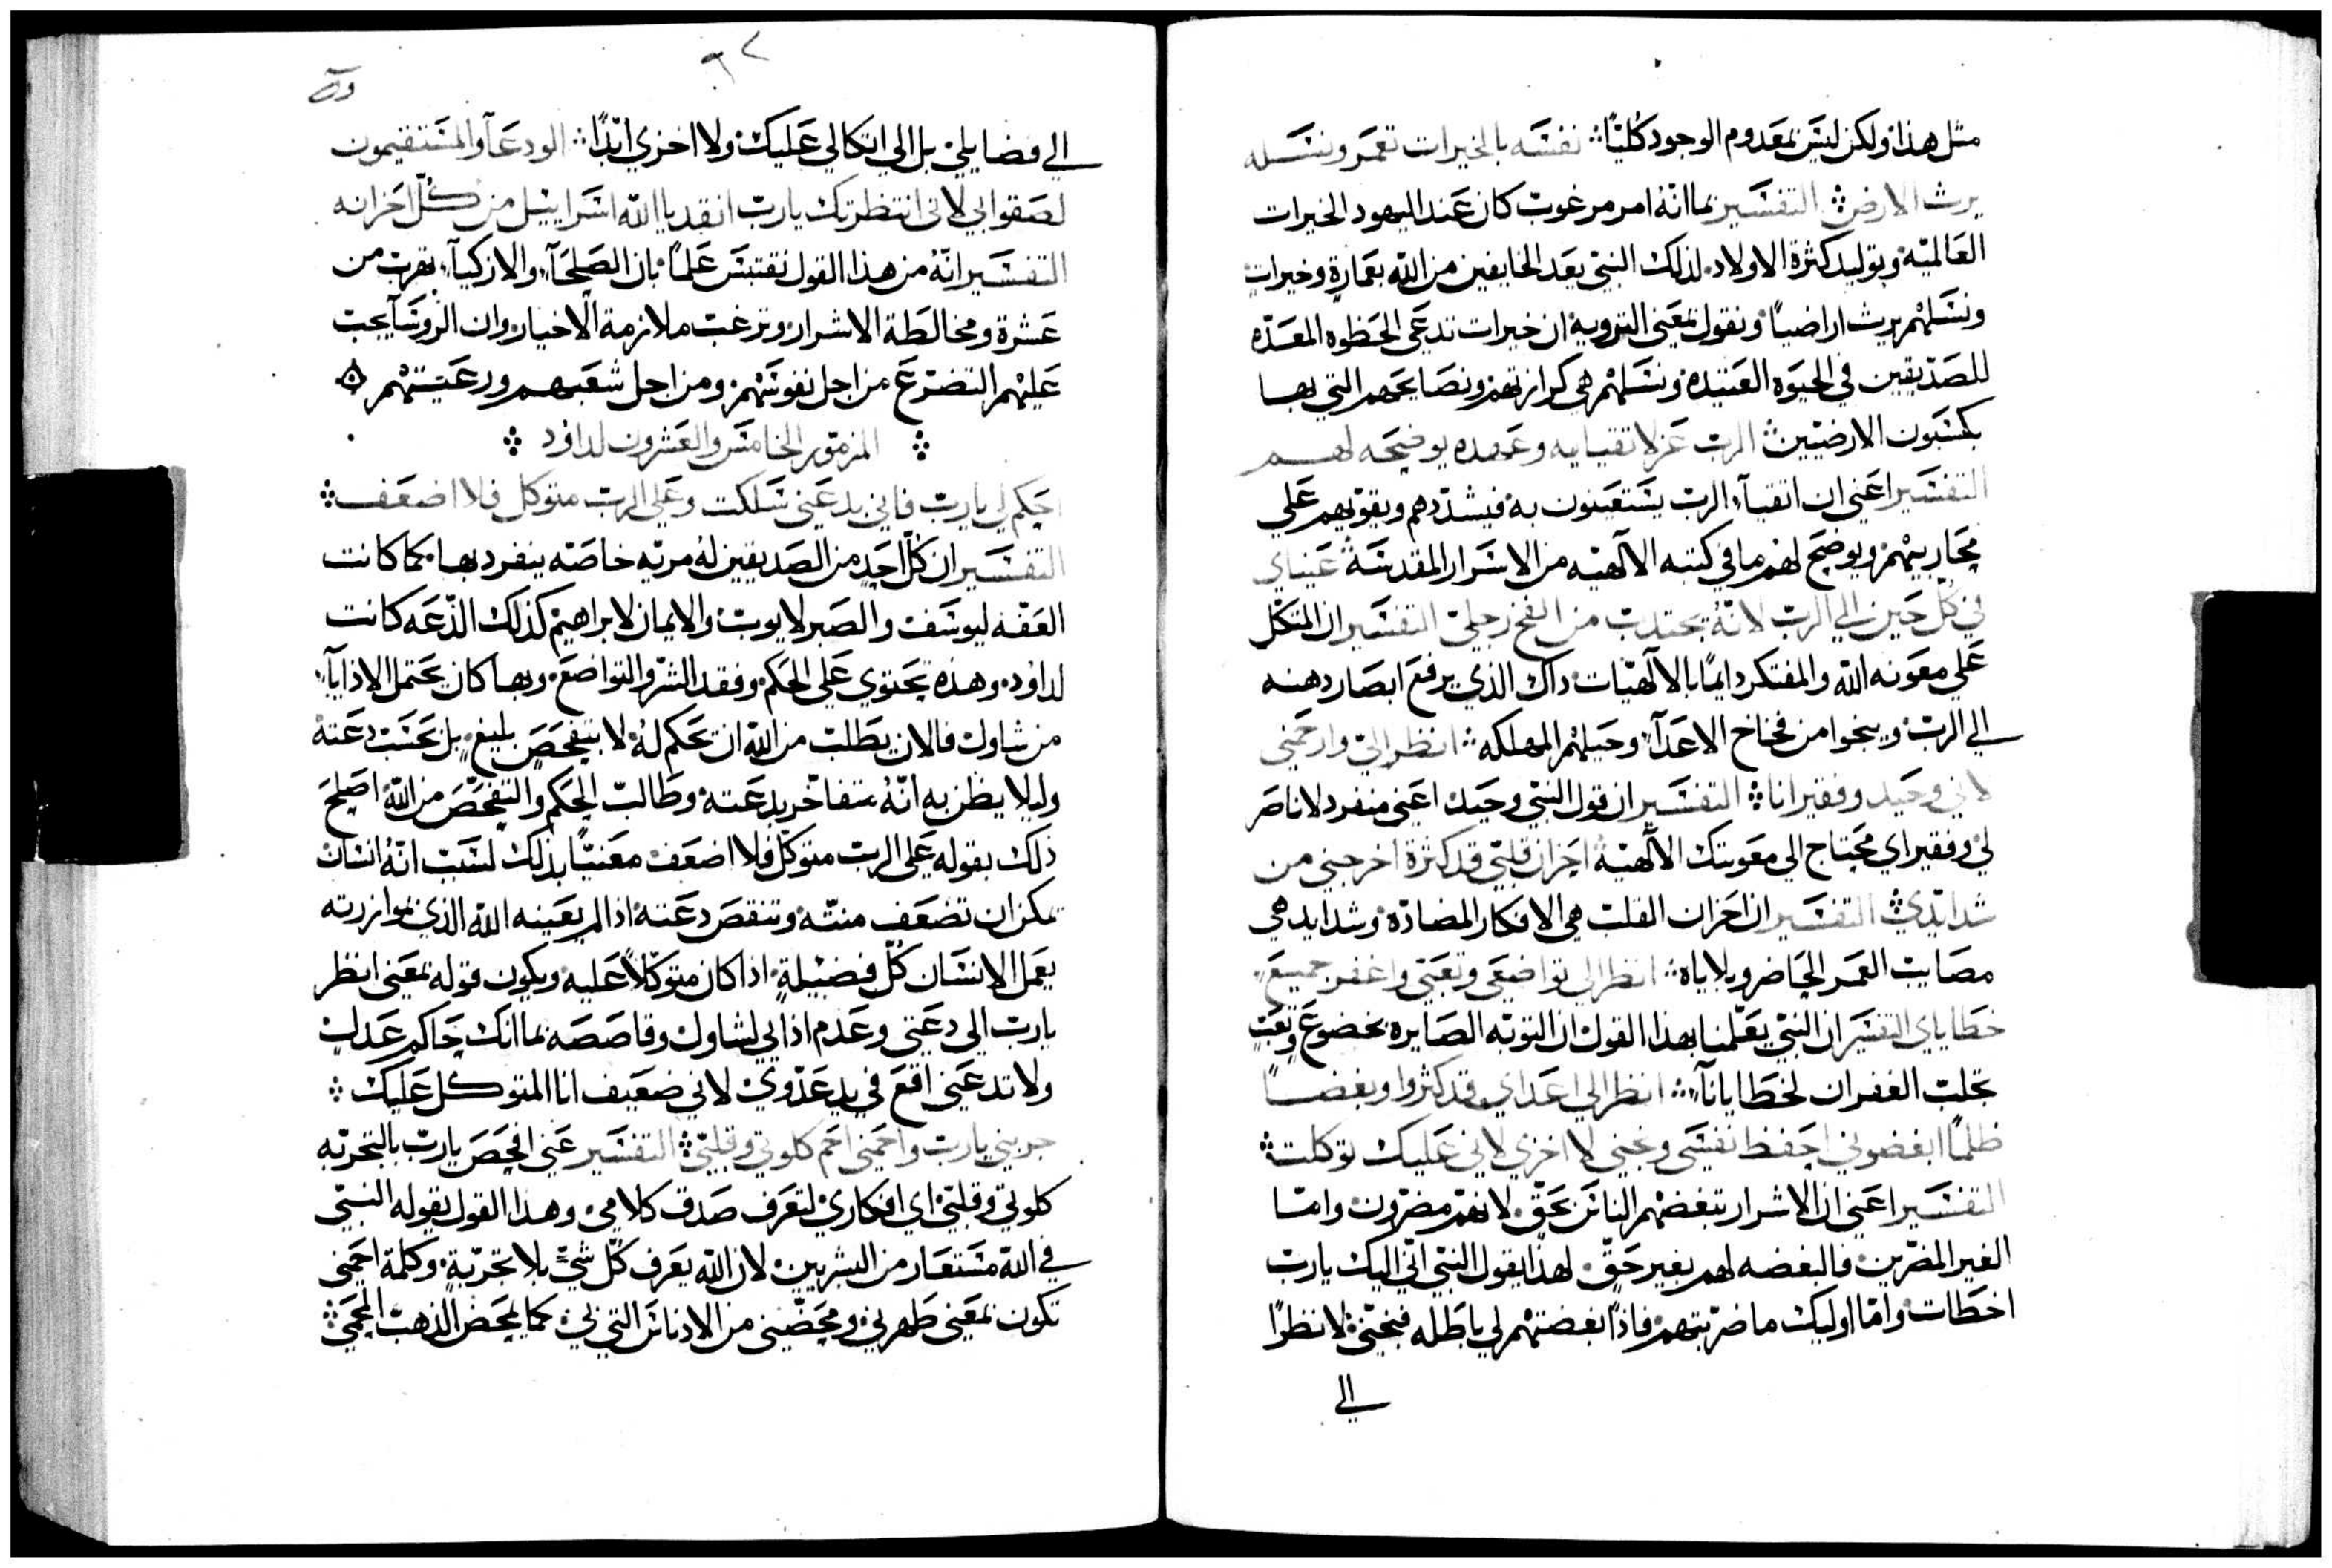 مثل هذا ولكن ليس بمعدوم الوجود كليًا نفسه بالخيرات تعمر ونسله
يرث الارض التفسير بما انه امر مرغوب كان عند اليهود الخيرات
العالميه وتوليد كثرة الاولاد لذلك النبي يعد الخايفين من الله بعمارة وخيرات
ونسلهم يرث اراضيًا ونقول بمعنى الترويه ان خيرات تدعى الحظوه المعده
للصديقين في الحيوه العتيده ونسلهم هي كرازتهم ونصايحهم التي بها
يكسبون الارضيين الرب عز لاتقيايه وعهده يوضحه لهم
التفسير اعني ان اتقيآ الرب يستعينون به فيشددهم ويقويهم على
محاربيهم ويوضح لهم ما في كتبه الالهيه من الاسرار المقدسة عيناي
في كل حين الى الرب لانه يجتدب من الفخ رجلي التفسير ان المتكل
على معونه الله والمفتكر دايمًا بالالهيات داك الذي يرفع ابصار دهنه
الى الرب وينجوا من فخاخ الاعدآ وحيلهم المهلكه انظر الي وارحمني
لاني وحيد وفقير انا التفسير ان قول النبي وحيد اعني منفرد لا ناصر
لي وفقير اي محتاج الى معونتك الالهية احزان قلبي قد كثرة اخرجني من
شدايدي التفسير ان احزان القلب هي الافكار المضادة وشدايد هي
مصايب العمر الحاضر وبلاياه انظر الى تواضعي وتعبي واغفر جميع
خطاياي التفسير ان النبي يعلمنا بهذا القول ان التوبه الصايره بخضوع وتعب
تجلب الغفران لخطايانا انظر الى اعداي قد كثروا وبغضًا
ظلمًا ابغضوني احفظ نفسي ونجني لا اخزي لاني عليك توكلت
التفسير اعني ان الاشرار تبغضهم الناس بحق لانهم مضرون واما
الغير المضرين فالبغضه لهم بغير حق لهذا يقول النبي اني اليك يارب
اخطات واما اوليك ما ضريتهم فاذًا بغضتهم لي باطله فنجني لا نظرًا
الى
الى فضايلي بل الى اتكالي عليك ولا اخزي ابدًا الودعآ والمستقيمون
لصقوا بي لاني انتظرتك يارب انقد يا الله اسراييل من كل احزانه
التفسير انه من هذا القول نقتبس علمًا بان الصلحآ والازكيآ تهرب من
عشرة ومخالطة الاشرار وترغب ملازمة الاخيار وان الروسآ يجب
عليهم التضرع من اجل نفوسهم ومن اجل شعبهم ورعيتهم
المزمور الخامس والعشرون لداود
احكم لي يارب فاني بدعتي سلكت وعلى الرب متوكل فلا اضعف
التفسير ان كل احد من الصديقين له مزيه خاصه ينفرد بها كما كانت
العفه ليوسف والصبر لايوب والايمان لابراهيم كذلك الدعه كانت
لداود وهذه تحتوي على الحكم وفقد الشر والتواضع وبها كان يحتمل الاذايآ
من شاول فالان يطلب من الله ان يحكم له لا بتفحص بليغ بل بحسب دعته
وليلا يظن به انه يتفاخر بدعته وطالب الحكم والتفحص من الله اصلح
ذلك بقوله على الرب متوكل فلا اضعف معنيًا بذلك لسبب انه انسان
يمكن ان تضعف منته وتنقص دعته اذا لم يعينه الله الذي بموازرته
يعمل الانسان كل فضيلة اذا كان متوكلًا عليه ويكون قوله بمعنى انظر
يارب الى دعتي وعدم اذاي لشاول وقاصصه بما انك حاكم عدل
ولا تدعني اقع في يد عدوي لاني ضعيف انا المتوكل عليك
جربني يارب واحميني احم كلوتي وقلبي التفسير عني افحص يارب بالتجربه
كلوتي وقلبي اي افكاري لتعرف صدق كلامي وهذا القول يقوله النبي
في الله مستعار من البشريين لان الله يعرف كل شيء بلا تجربة وكلمة احميني
تكون بمعنى طهرني ومحضني من الادناس التي لي كما يمحض الذهب المحمي